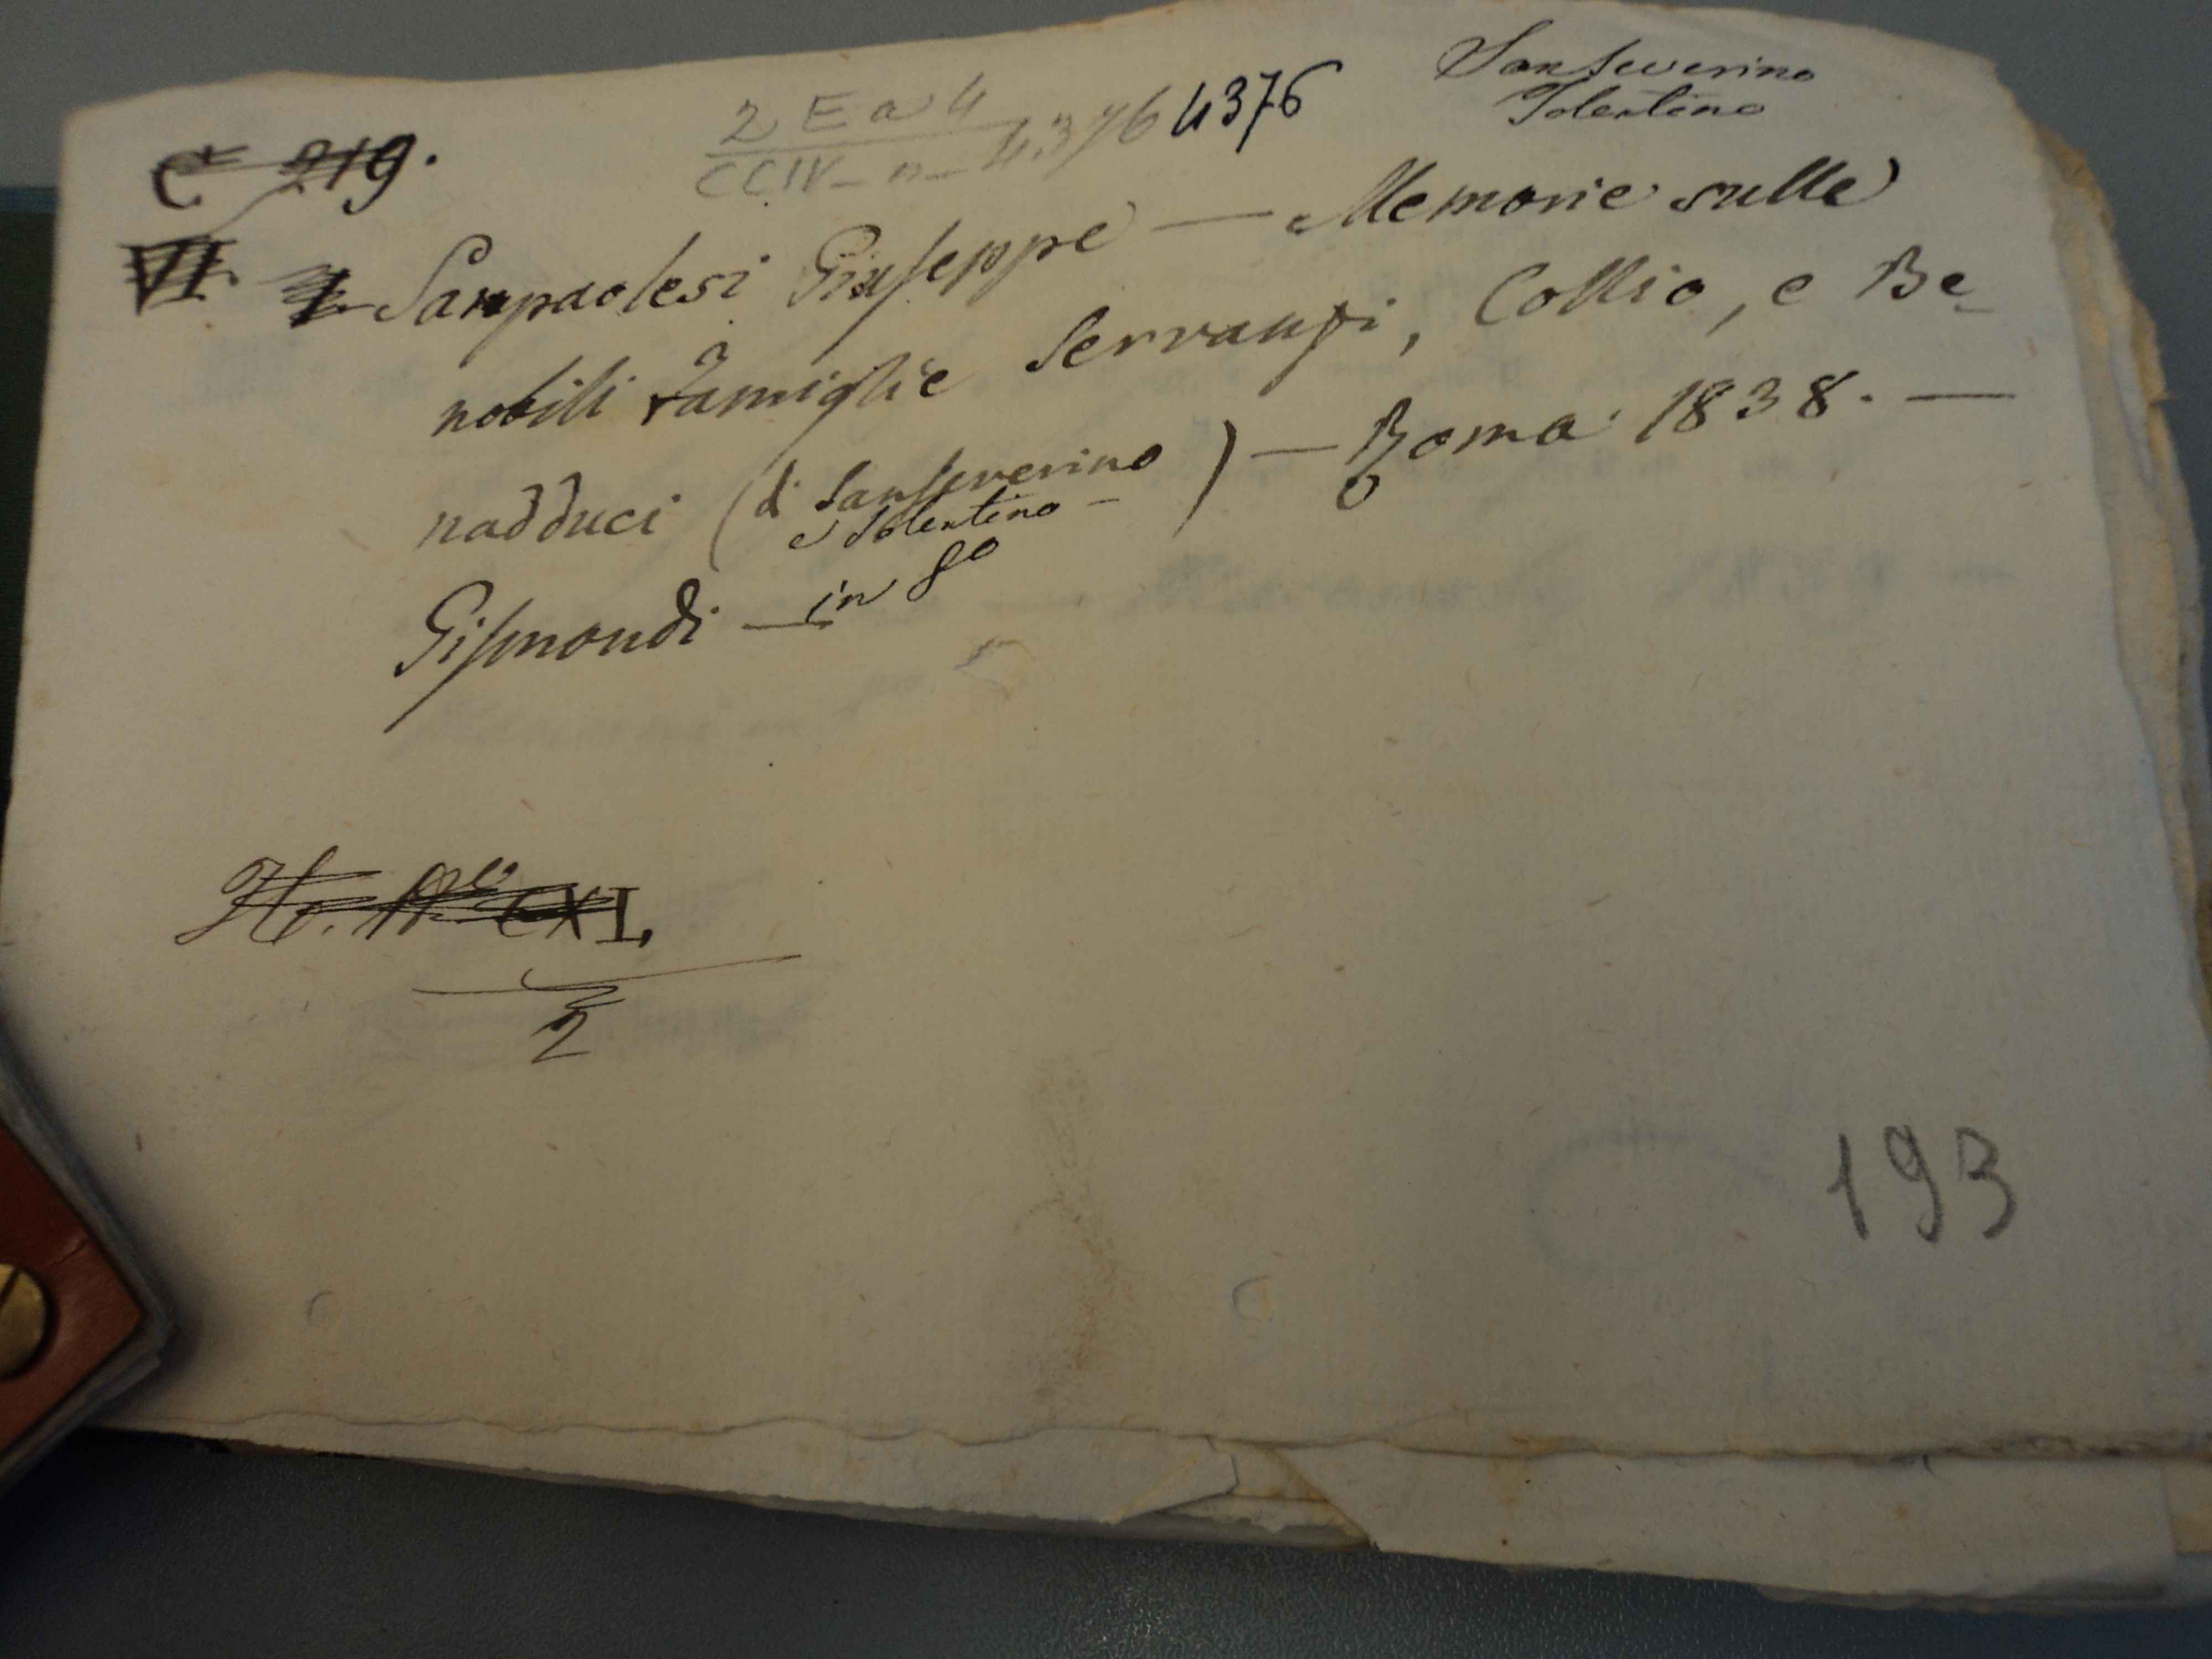 Sanseverino
Tolentino
2 E a 4
CCIV - n - 4376 4376
C 219.
VI 1 Sanpaolesi Giuseppe — Memorie sulle
nobili Famiglie Servanzi, Collio, e Be-
nadduci (di Sanseverino
e Tolentino - ) — Roma 1838. —
Gismondi — in 8º
CXI.
2
193